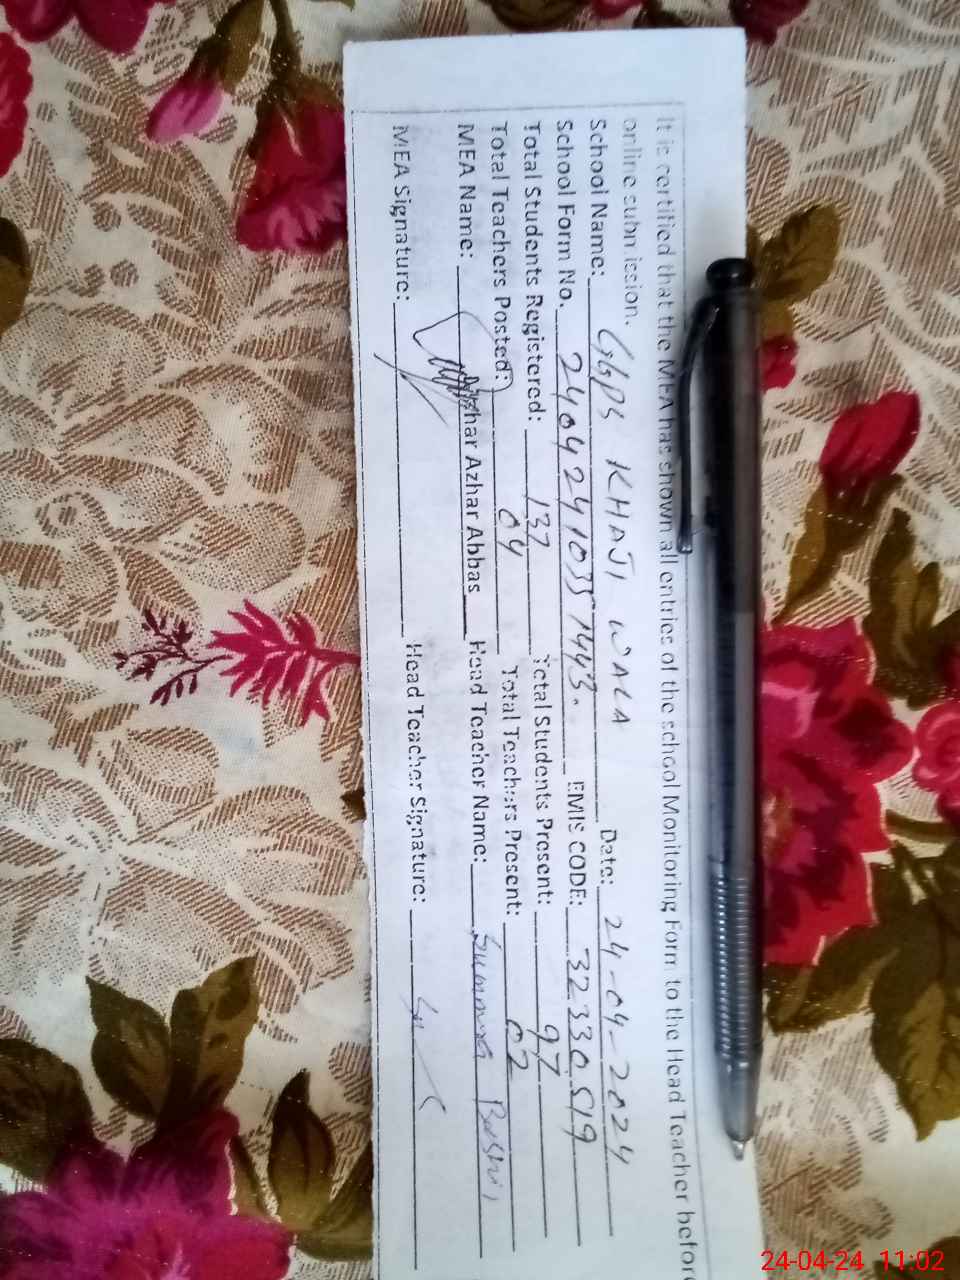 It is certified that the MEA has shown all entries of the school Monitoring Form to the Head Teacher before
online submission.
School Name: GGPS KHAJI WALA Date: 24-04-2024
School Form No. EMIS CODE: 32330519
Total Students Registered: 137 Total Students Present: 97
Total Teachers Posted: 04 Total Teachers Present: 02
MEA Name: Azhar Abbas Head Teacher Name: Summra Bashir
MEA Signature: Head Teacher Signature:
24-04-24 11:02